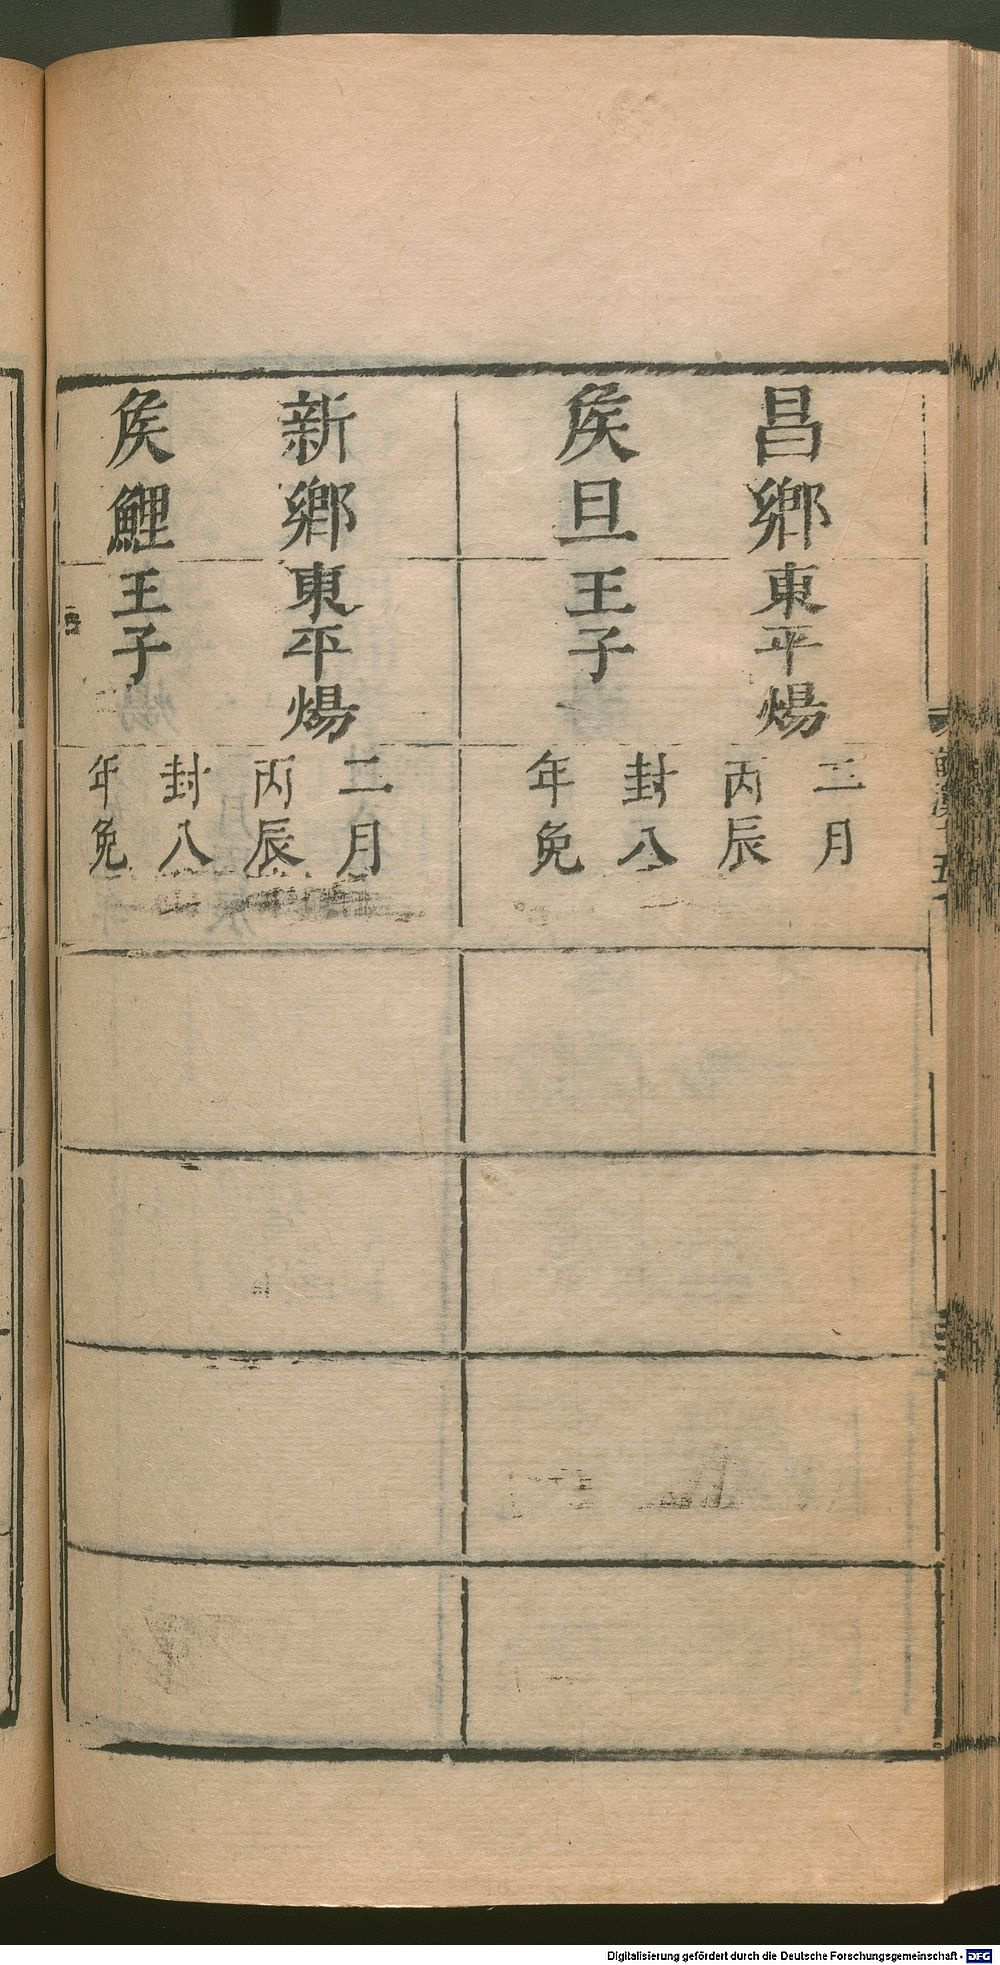 昌鄉
矦旦
東平煬
王子
二月
丙辰
封八
年免
新鄉
矦鯉
東平煬
王子
二月
丙辰
封八
年免
Digitalisierung gefördert durch die Deutsche Forschungsgemeinschaft - DFG